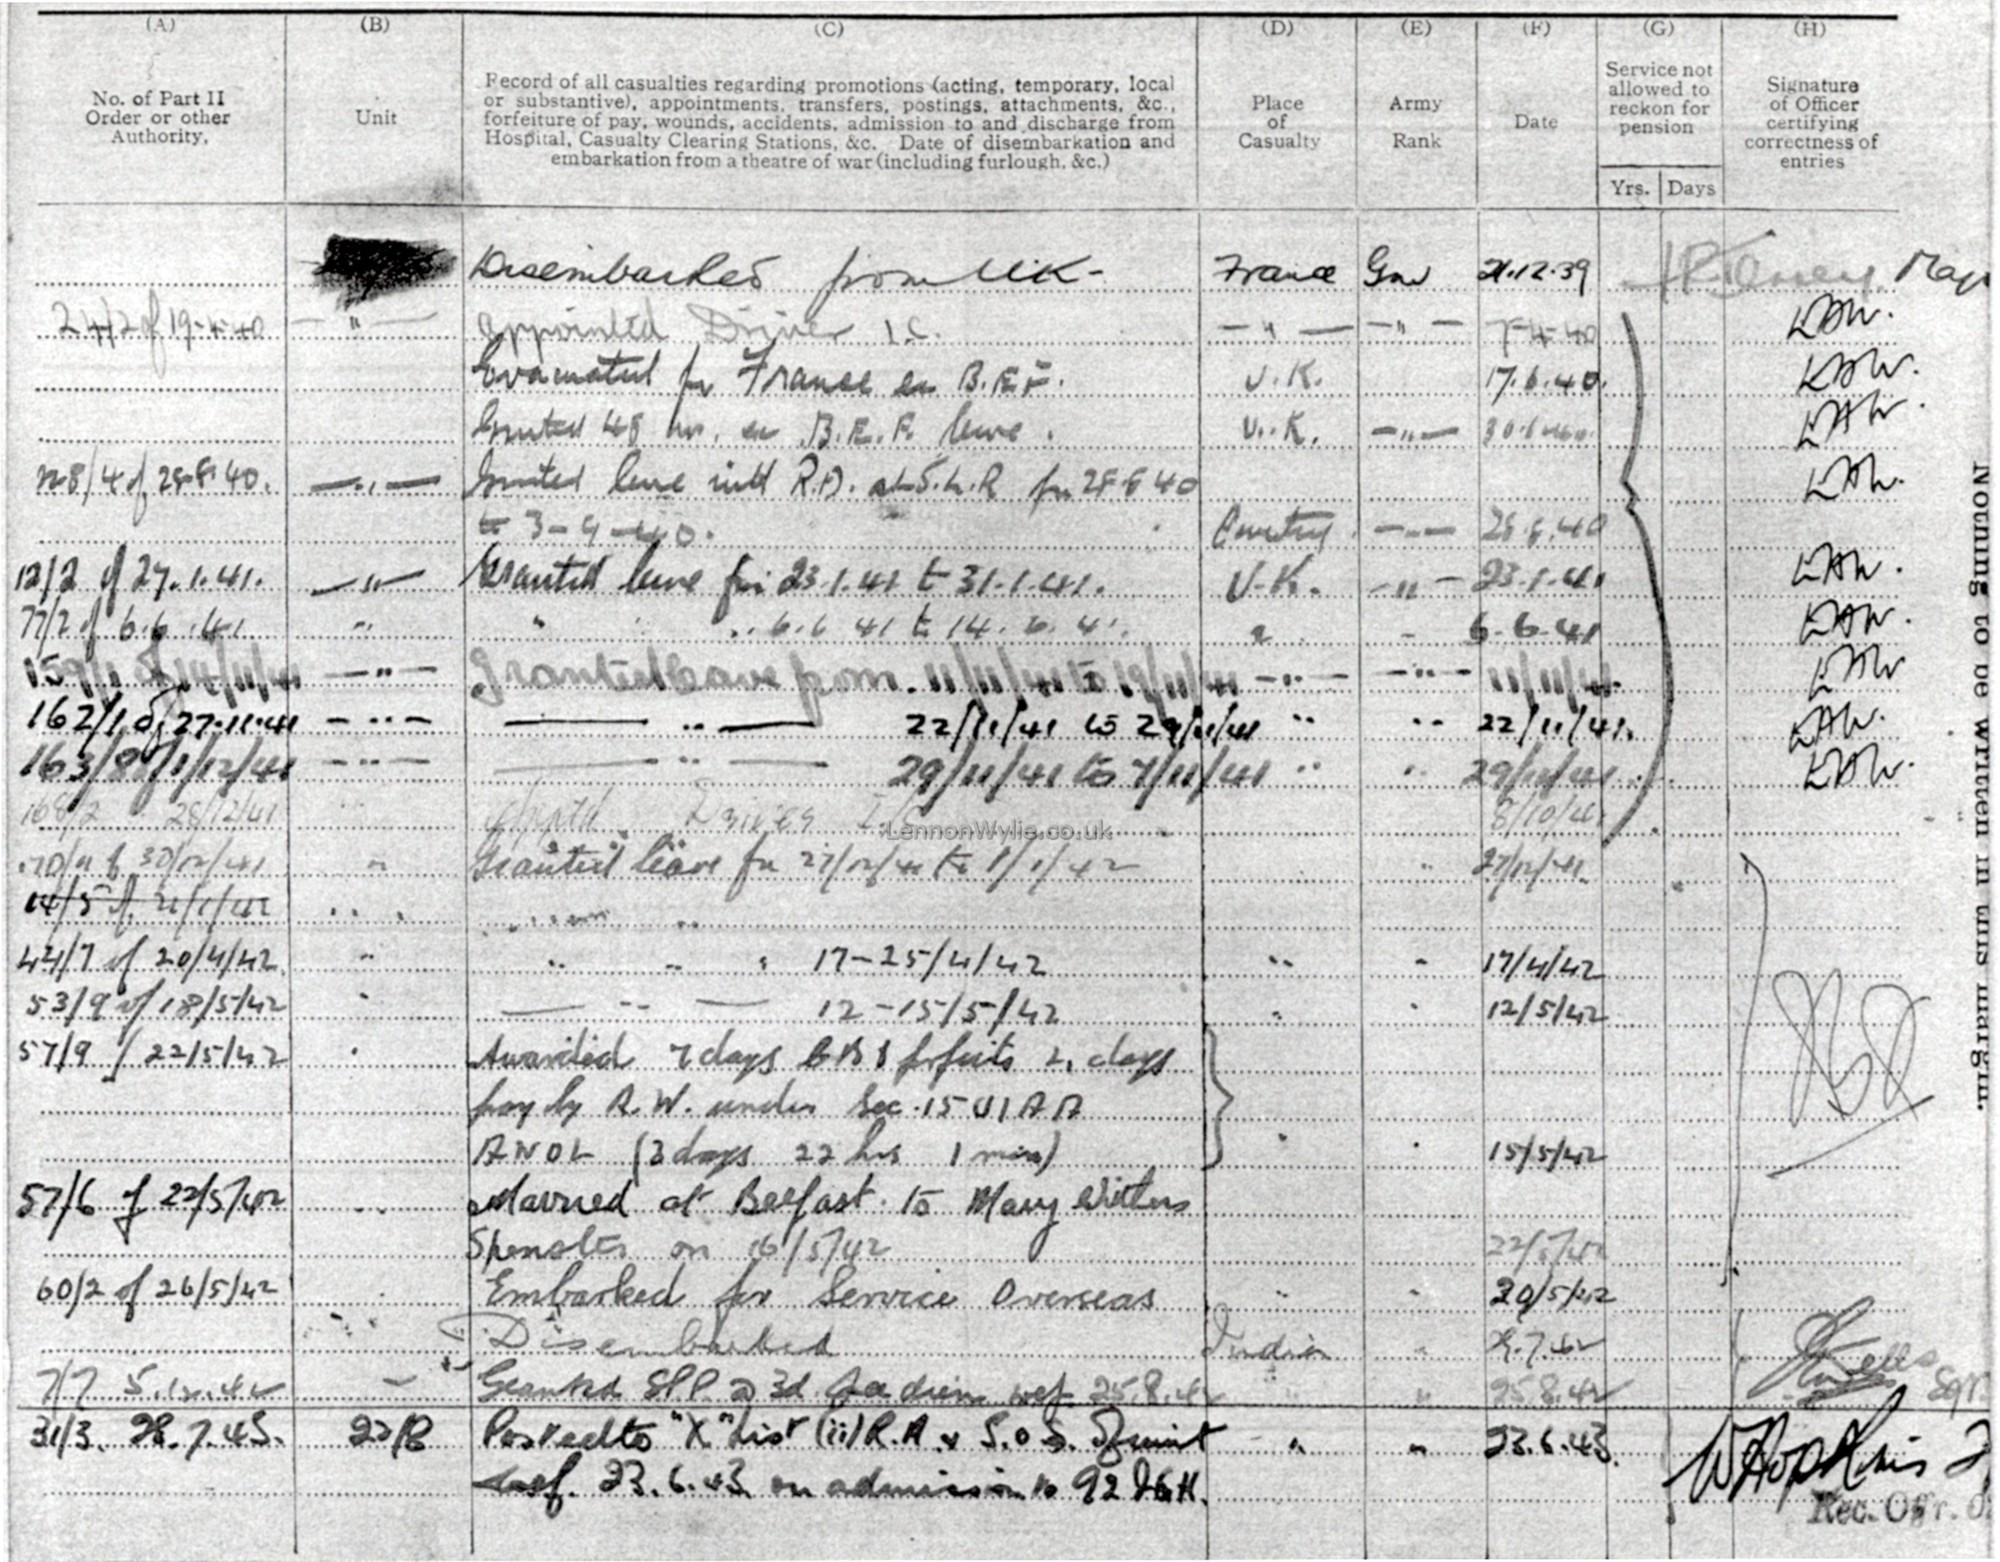 (A) (B) (C) (D) (E) (F) (G) (H)
No. of Part II Order or other Authority.
Unit
Record of all casualties regarding promotions (acting, temporary, local
or substantive), appointments, transfers, postings, attachments, &c.,
forfeiture of pay, wounds, accidents, admission to and discharge from
Hospital, Casualty Clearing Stations, &c. Date of disembarkation and
embarkation from a theatre of war (including furlough, &c.)
Place of Casualty
Army Rank
Date
Service not allowed to reckon for pension
Yrs. Days
Signature of Officer certifying correctness of entries
Disembarked from UK - France Gnr 21.12.39 Major
24/2 of 19-4-40 — " — appointed Driver I.C. — " — — " — 7-4-40
Evacuated fr France ex B.E.F. U.K. 17.6.40.
Granted 48 hr. ex B.E.F. leave. U.K. — " —
of 28.8.40. — " — Granted leave with R.A. at S.L.R fr 28 8 40
to 3-9-40. — " — 28.8.40
12/2 of 27.1.41. — " — Granted leave fr 23.1.41 to 31.1.41. U.K. — " — 23.1.41
77/2 of 6.6.41 " " " 6.6.41 to 14.6.41. 6.6.41
159/1 of 14/11/41 — " — Granted leave from. 11/11/41 to 19/11/41 — " — — " — 11/11/41
162/1 of 27.11.41 — " — — " — 22/11/41 to 29/11/41 " " 22/11/41.
163/8 of 1/12/41 — " — — " — 29/11/41 to 7/11/41 " " 29/11/41
168/2 28/12/41 Driver I/C
LennonWylie.co.uk
70/9 of 30/12/41 " Granted leave fr 27/12/41 to 1/1/42 " 27/12/41.
14/5 of 21/1/42
44/7 of 20/4/42 " " " " 17-25/4/42 " " 17/4/42
53/9 of 18/5/42 " — " — 12-15/5/42 " " 12/5/42
57/9 of 22/5/42 " Awarded 7 days CB & forfeits 4 days
pay by R.W. under Sec. 15 (1) AA
AWOL (3 days 22 hrs 1 min) " " 15/5/42
57/6 of 22/5/42 " Married at Belfast to Mary Withers
Spinster on 16/5/42
60/2 of 26/5/42 Embarked for Service Overseas " " 20/5/42
Disembarked India "
7/7 5.12.42 Granted SPP @ 3d. wef 25.8.42 " " 25.8.42
31/3. 28.7.43. 22/8 Posted to "X" List (ii) R.A. & S.O.S. " " 23.6.43.
wef. 23.6.43 on admission to 92 IGH. W Hopkins
Rec. Offr.
Nothing to be written in this margin.